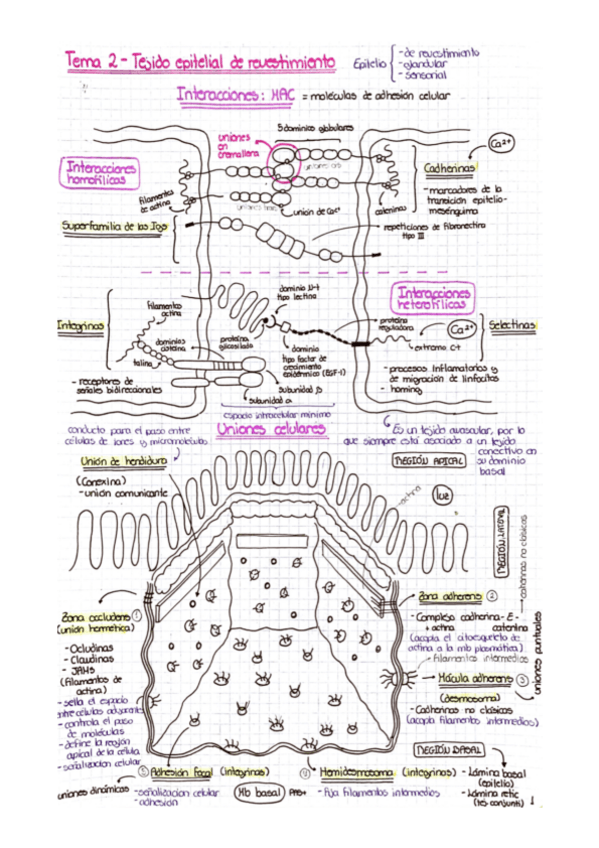 Tema 2 - Tejido epitelial de revestimiento
Epitelio
- de revestimiento
- glandular
- sensorial
Interacciones: MAC = moléculas de adhesión celular
5 dominios globulares
uniones en cremallera
Ca2+
Interacciones homofílicas
Cadherinas
- marcadores de la transición epitelio-mesénquima
filamentos de actina
uniones cis
uniones trans
unión de Ca2+
cateninas
Superfamilia de las Igs
repeticiones de fibronectina tipo III
dominio N-t tipo lectina
Interacciones heterofílicas
Integrinas
filamentos actina
dominios cisteína
talina
proteína glicosilada
dominio tipo factor de crecimiento epidérmico (EGF-1)
proteína reguladora
Ca2+
Selectinas
extremo C-t
- receptores de señales bidireccionales
subunidad β
subunidad α
- procesos inflamatorios y de migración de linfocitos
- homing
espacio intracelular mínimo
Uniones celulares
conducto para el paso entre células de iones y micromoléculas
Es un tejido avascular, por lo que siempre está asociado a un tejido conectivo en su dominio basal
Unión de hendidura
(Conexina)
- unión comunicante
REGIÓN APICAL
actina
luz
REGIÓN LATERAL
Zona occludens ①
(unión hermética)
- Ocludinas
- Claudinas
- JAMS
(filamentos de actina)
- sella el espacio entre células adyacentes
- controla el paso de moléculas
- define la región apical de la célula
- señalización celular
Zona adherens ②
- Complejo cadherina-E-catenina
+ actina
(acopla el citoesqueleto de actina a la mb plasmática)
- filamentos intermedios
cadherinas no clásicas
uniones puntuales
Mácula adherens ③
(desmosoma)
- Cadherinas no clásicas
(acopla filamentos intermedios)
REGIÓN BASAL
⑤ Adhesión focal (integrinas)
uniones dinámicas
- señalización celular
- adhesión
Mb basal
PAS+
④ Hemidesmosoma (integrinas)
- fija filamentos intermedios
- Lámina basal (epitelio)
- Lámina retic (tej conjunti)